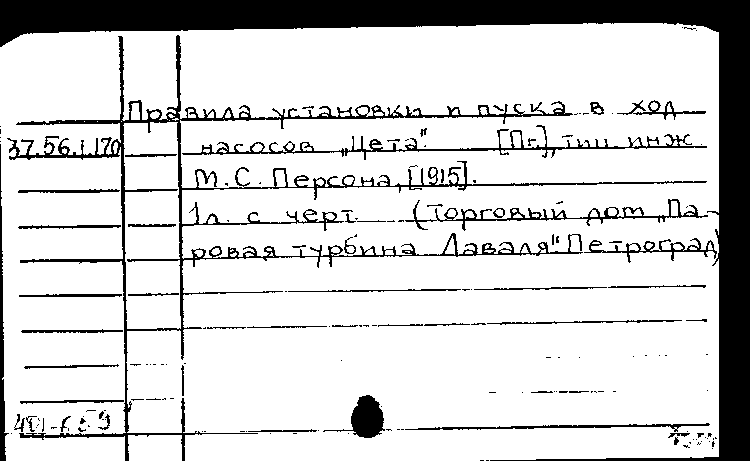 Правила установки и пуска в ход
37.56.1.170 насосов „Цета". [Пг.], тип. инж.
М.С. Персона, [1915].
1 л. с черт. (Торговый дом „Па-
ровая турбина Лаваля" Петроград)